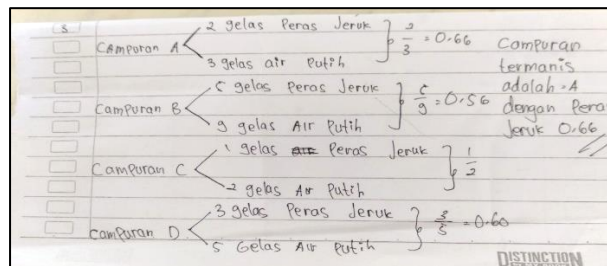 5
Campuran A
2 gelas Peras Jeruk
3 gelas air Putih
2/3 = 0.66
Campuran B
5 gelas Peras Jeruk
9 gelas Air Putih
5/9 = 0.56
Campuran C
1 gelas Peras Jeruk
2 gelas Air Putih
1/2
Campuran D
3 gelas Peras Jeruk
5 Gelas Air Putih
3/5 = 0.60
Campuran
termanis
adalah = A
dengan Peras
Jeruk 0.66
DISTINCTION